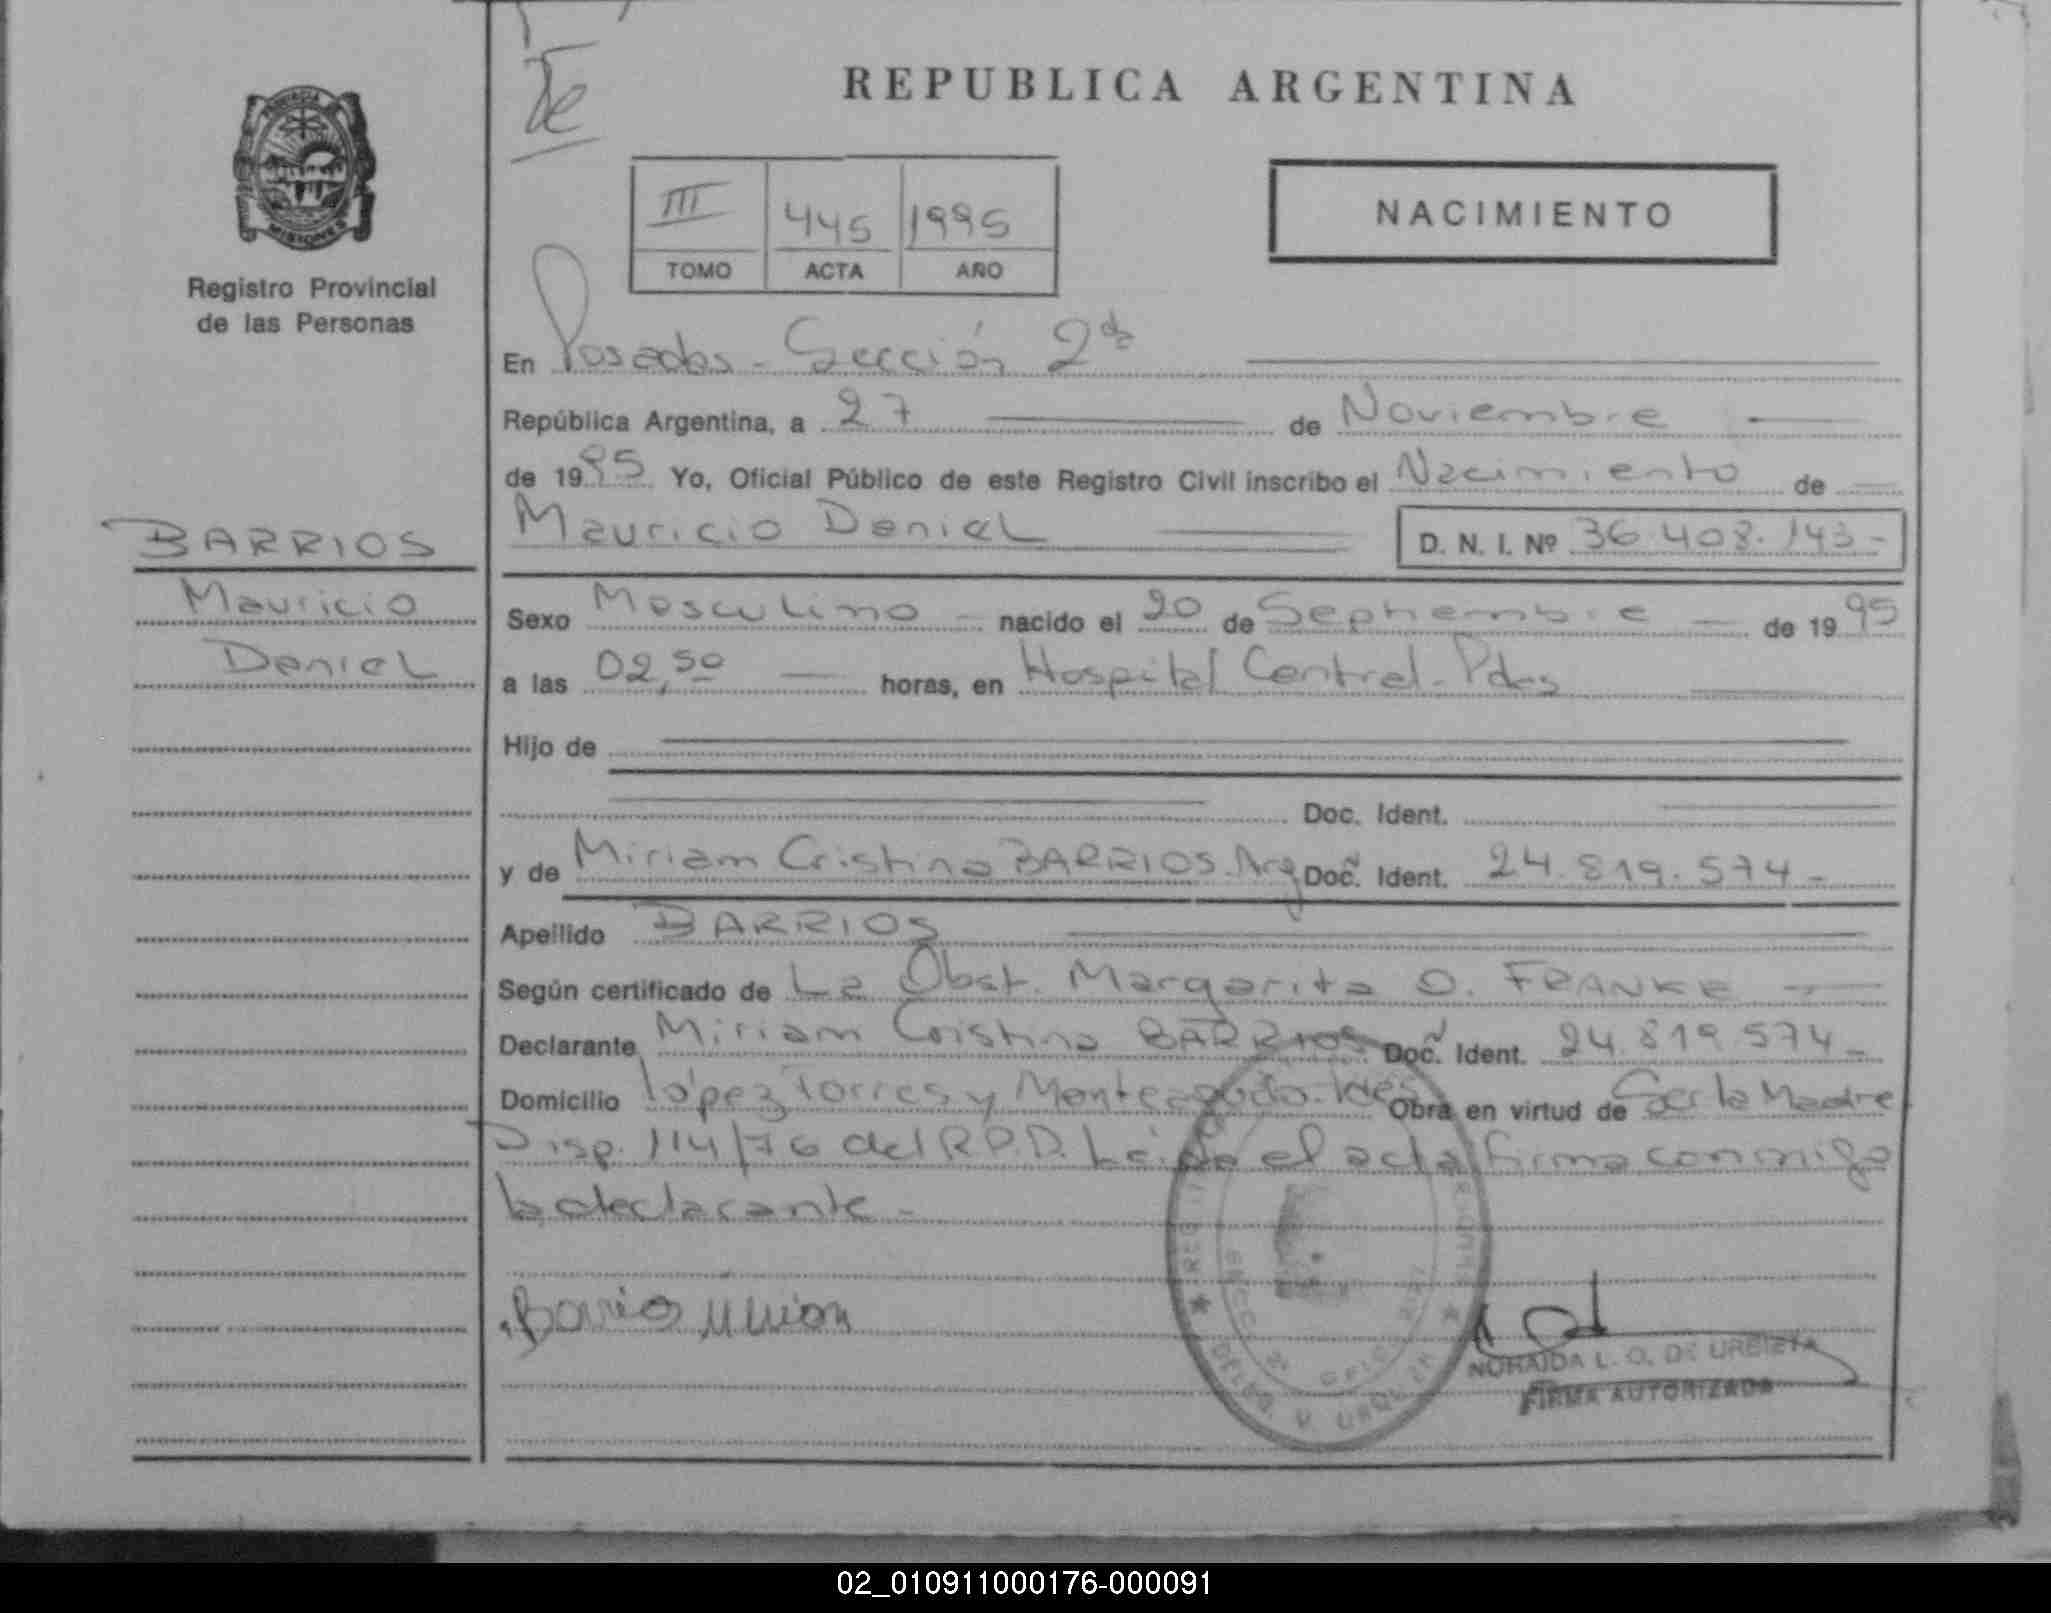 REPUBLICA ARGENTINA
III 445 1995
TOMO ACTA AÑO
NACIMIENTO
MISIONES
Registro Provincial
de las Personas
BARRIOS
Mauricio
Daniel
En Posadas - Sección 2da
República Argentina, a 27 de Noviembre
de 1995 Yo, Oficial Público de este Registro Civil inscribo el Nacimiento de
Mauricio Daniel D. N. I. Nº 36.408.143-
Sexo Masculino nacido el 20 de Septiembre de 1995
a las 02,50 horas, en Hospital Central - Pdas
Hijo de
Doc. Ident.
y de Miriam Cristina BARRIOS. Arg Doc. Ident. 24.819.574-
Apellido BARRIOS
Según certificado de La Obst. Margarita O. FRANKE
Declarante Miriam Cristina BARRIOS Doc. Ident. 24.819.574-
Domicilio López Torres y Monteagudo - Obra en virtud de Ser la Madre
Disp. 114/76 del R.P.D. Leída el acta firma conmigo
la declarante -
Barrios Miriam
NORAIDA L. O. DE URBIETA
FIRMA AUTORIZADA
02_010911000176-000091